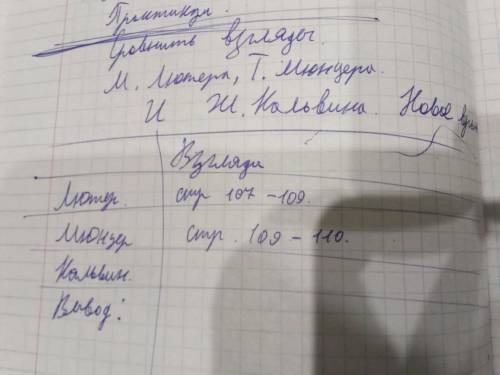 Практикум.
Сравнить взгляды.
М. Лютера, Т. Мюнцера.
И Ж. Кальвина. Новое
Взгляды
Лютер. стр 107-109.
Мюнцер стр. 109-110.
Кальвин.
Вывод: